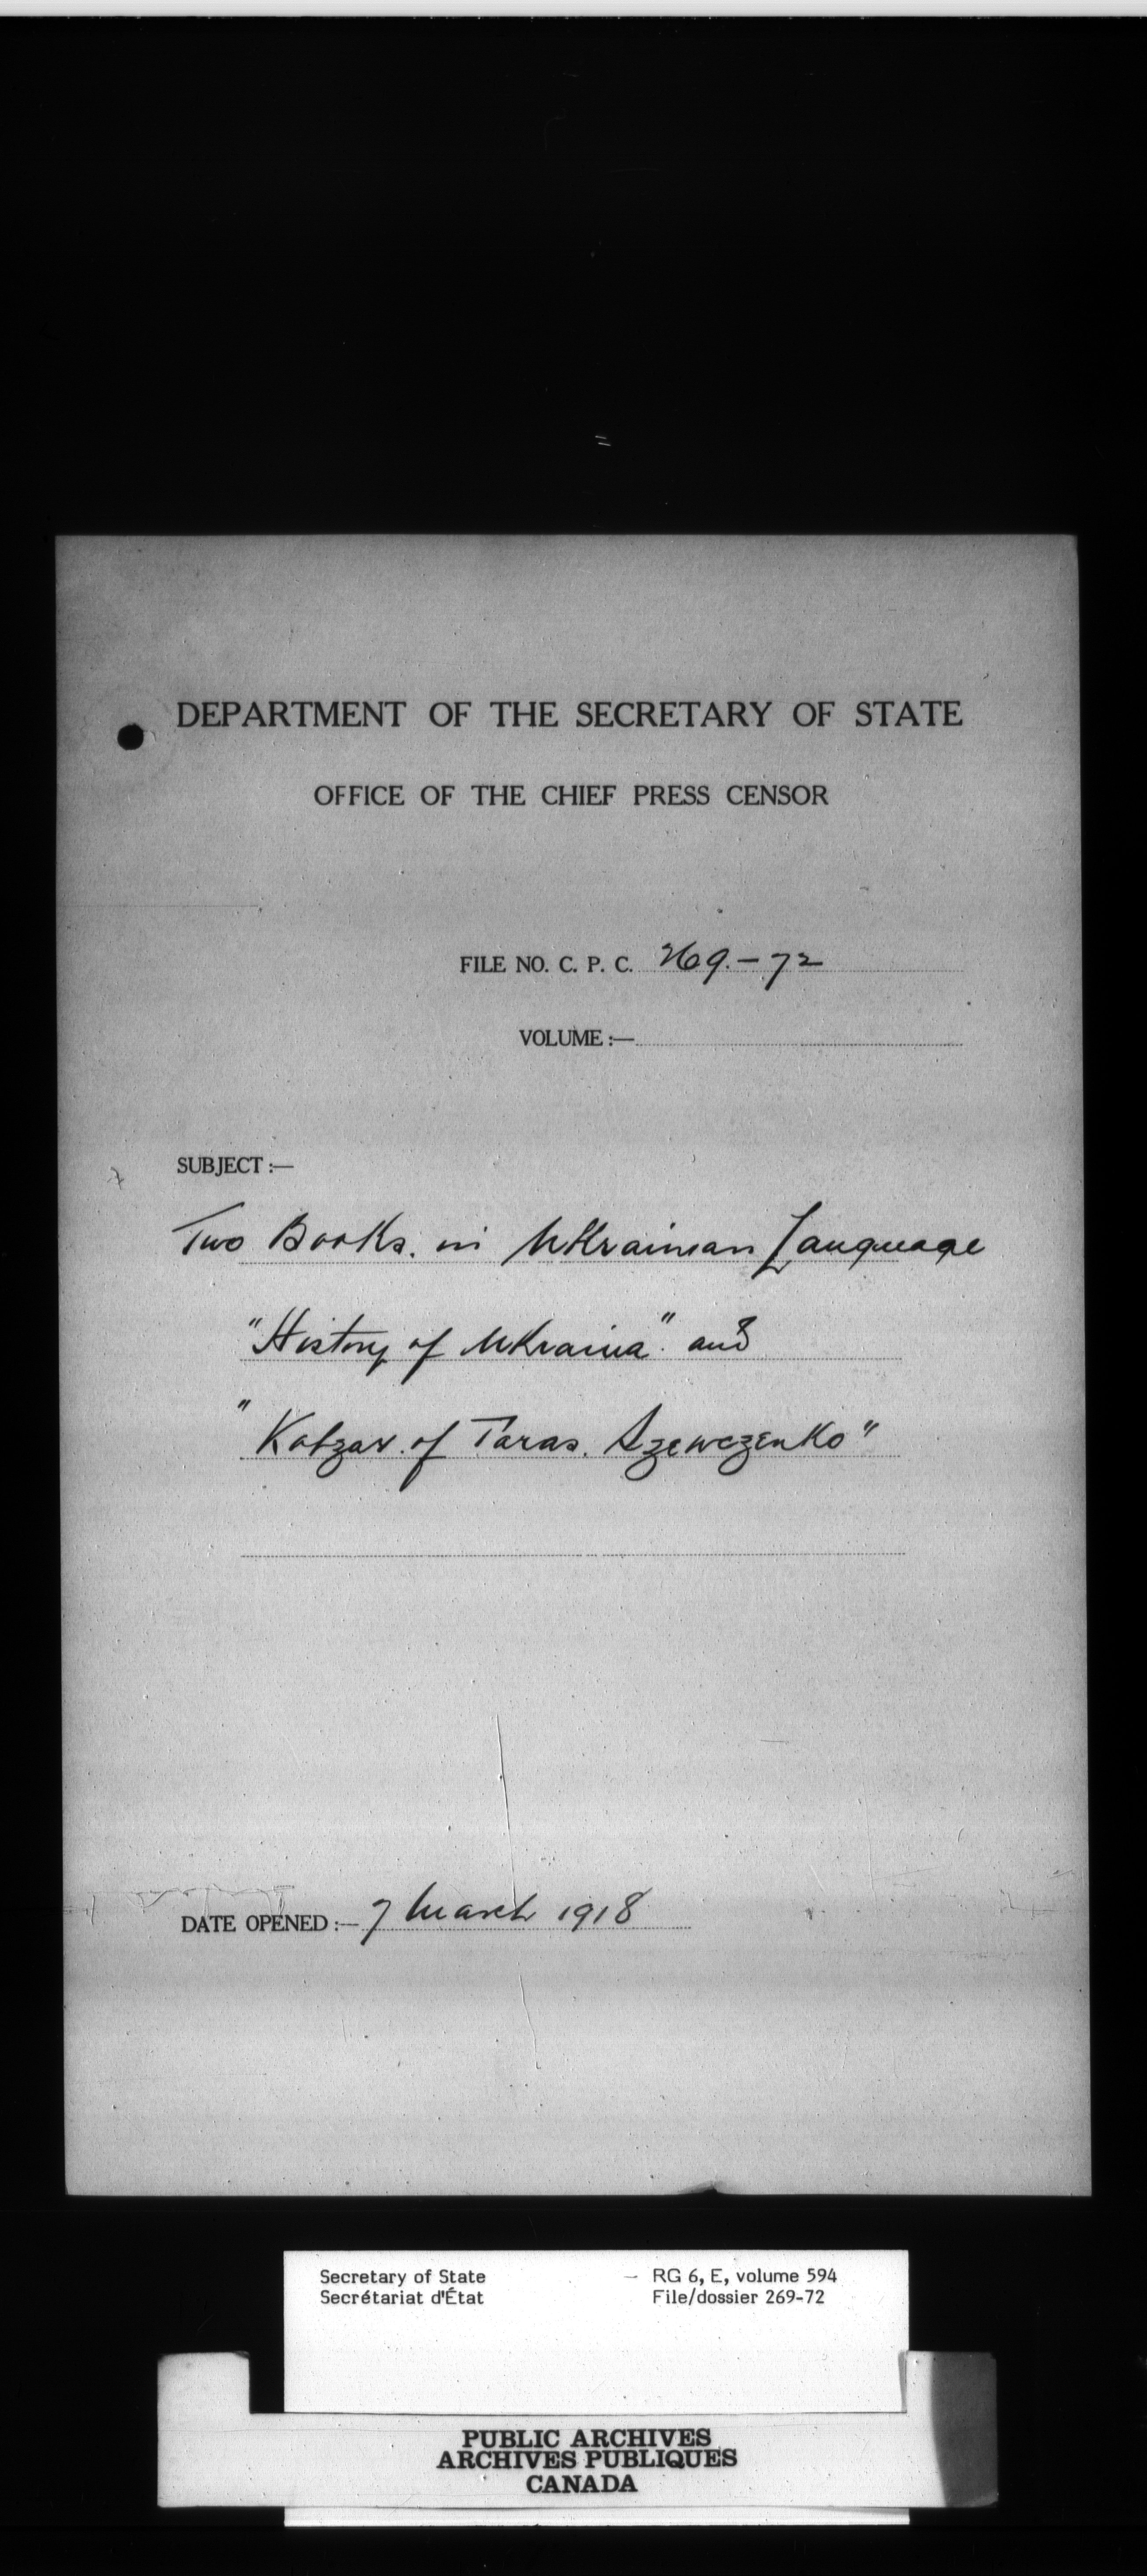 DEPARTMENT OF THE SECRETARY OF STATE
OFFICE OF THE CHIEF PRESS CENSOR
FILE NO. C. P. C. 269.-72
VOLUME :—
SUBJECT :—
Two Books. in Ukrainian Language
"History of Ukraina". and
"Kobzar. of Taras. Szewczenko"
DATE OPENED :— 7 March 1918
Secretary of State — RG 6, E, volume 594
Secrétariat d'État File/dossier 269-72
PUBLIC ARCHIVES
ARCHIVES PUBLIQUES
CANADA